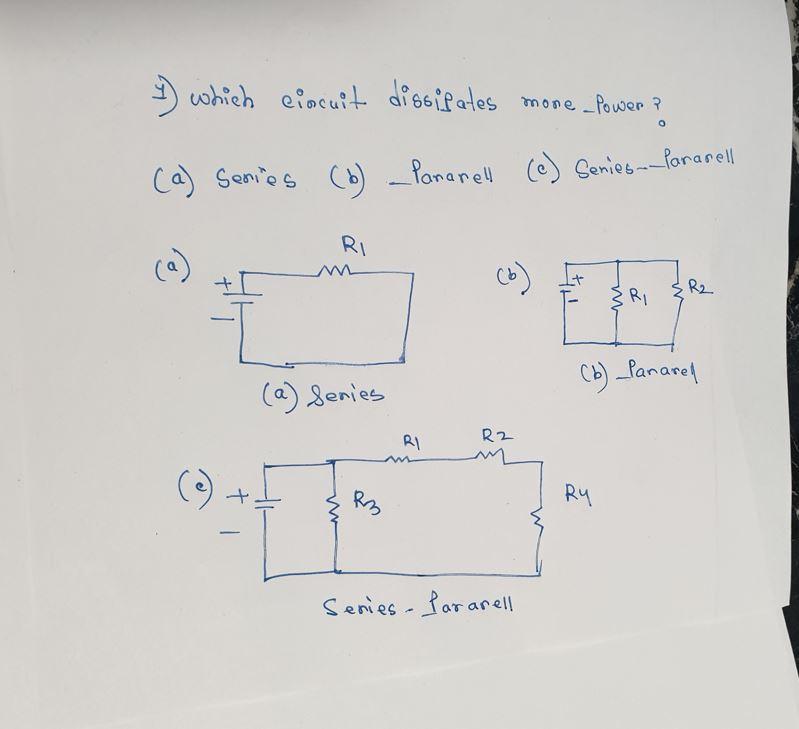 1) which circuit dissipates more power?
(a) Series (b) Pararell (c) Series-Pararell
(a) + R1
-
(a) Series
(b) + R1 R2
-
(b) Pararel
(c) + R3 R1 R2 R4
-
Series-Pararell